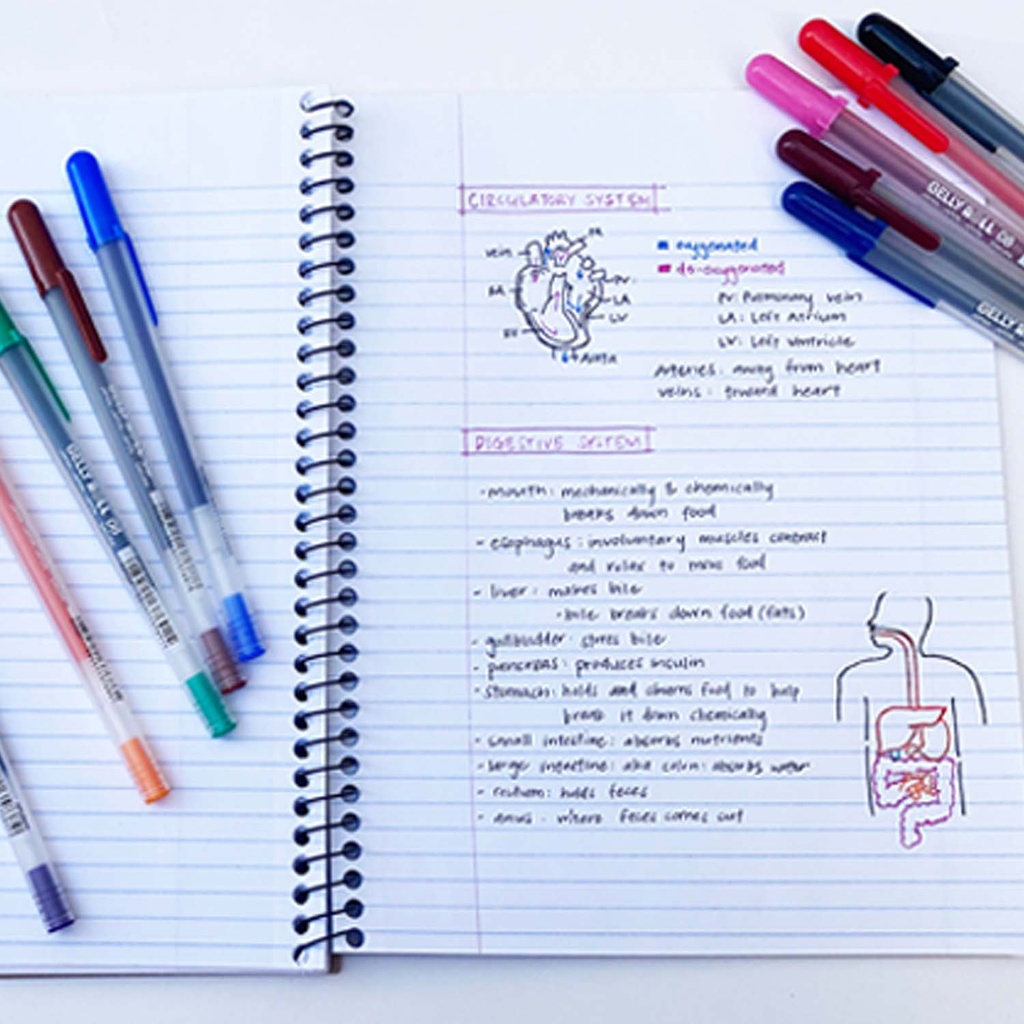 CIRCULATORY SYSTEM
vein
PA
oxygenated
de-oxygenated
RA
PV
LA
LV
RV
Aorta
PV: Pulmonary vein
LA: Left Atrium
LV: Left Ventricle
Arteries: away from heart
veins: toward heart
DIGESTIVE SYSTEM
- mouth: mechanically & chemically
breaks down food
- esophagus: involuntary muscles contract
and relax to move food
- liver: makes bile
- bile breaks down food (fats)
- gallbladder: stores bile
- pancreas: produces insulin
- stomach: holds and churns food to help
break it down chemically
- small intestine: absorbs nutrients
- large intestine: aka colon: absorbs water
- rectum: holds feces
- anus: where feces comes out
GELLY ROLL 08
GELLY ROLL
GELLY ROLL 08